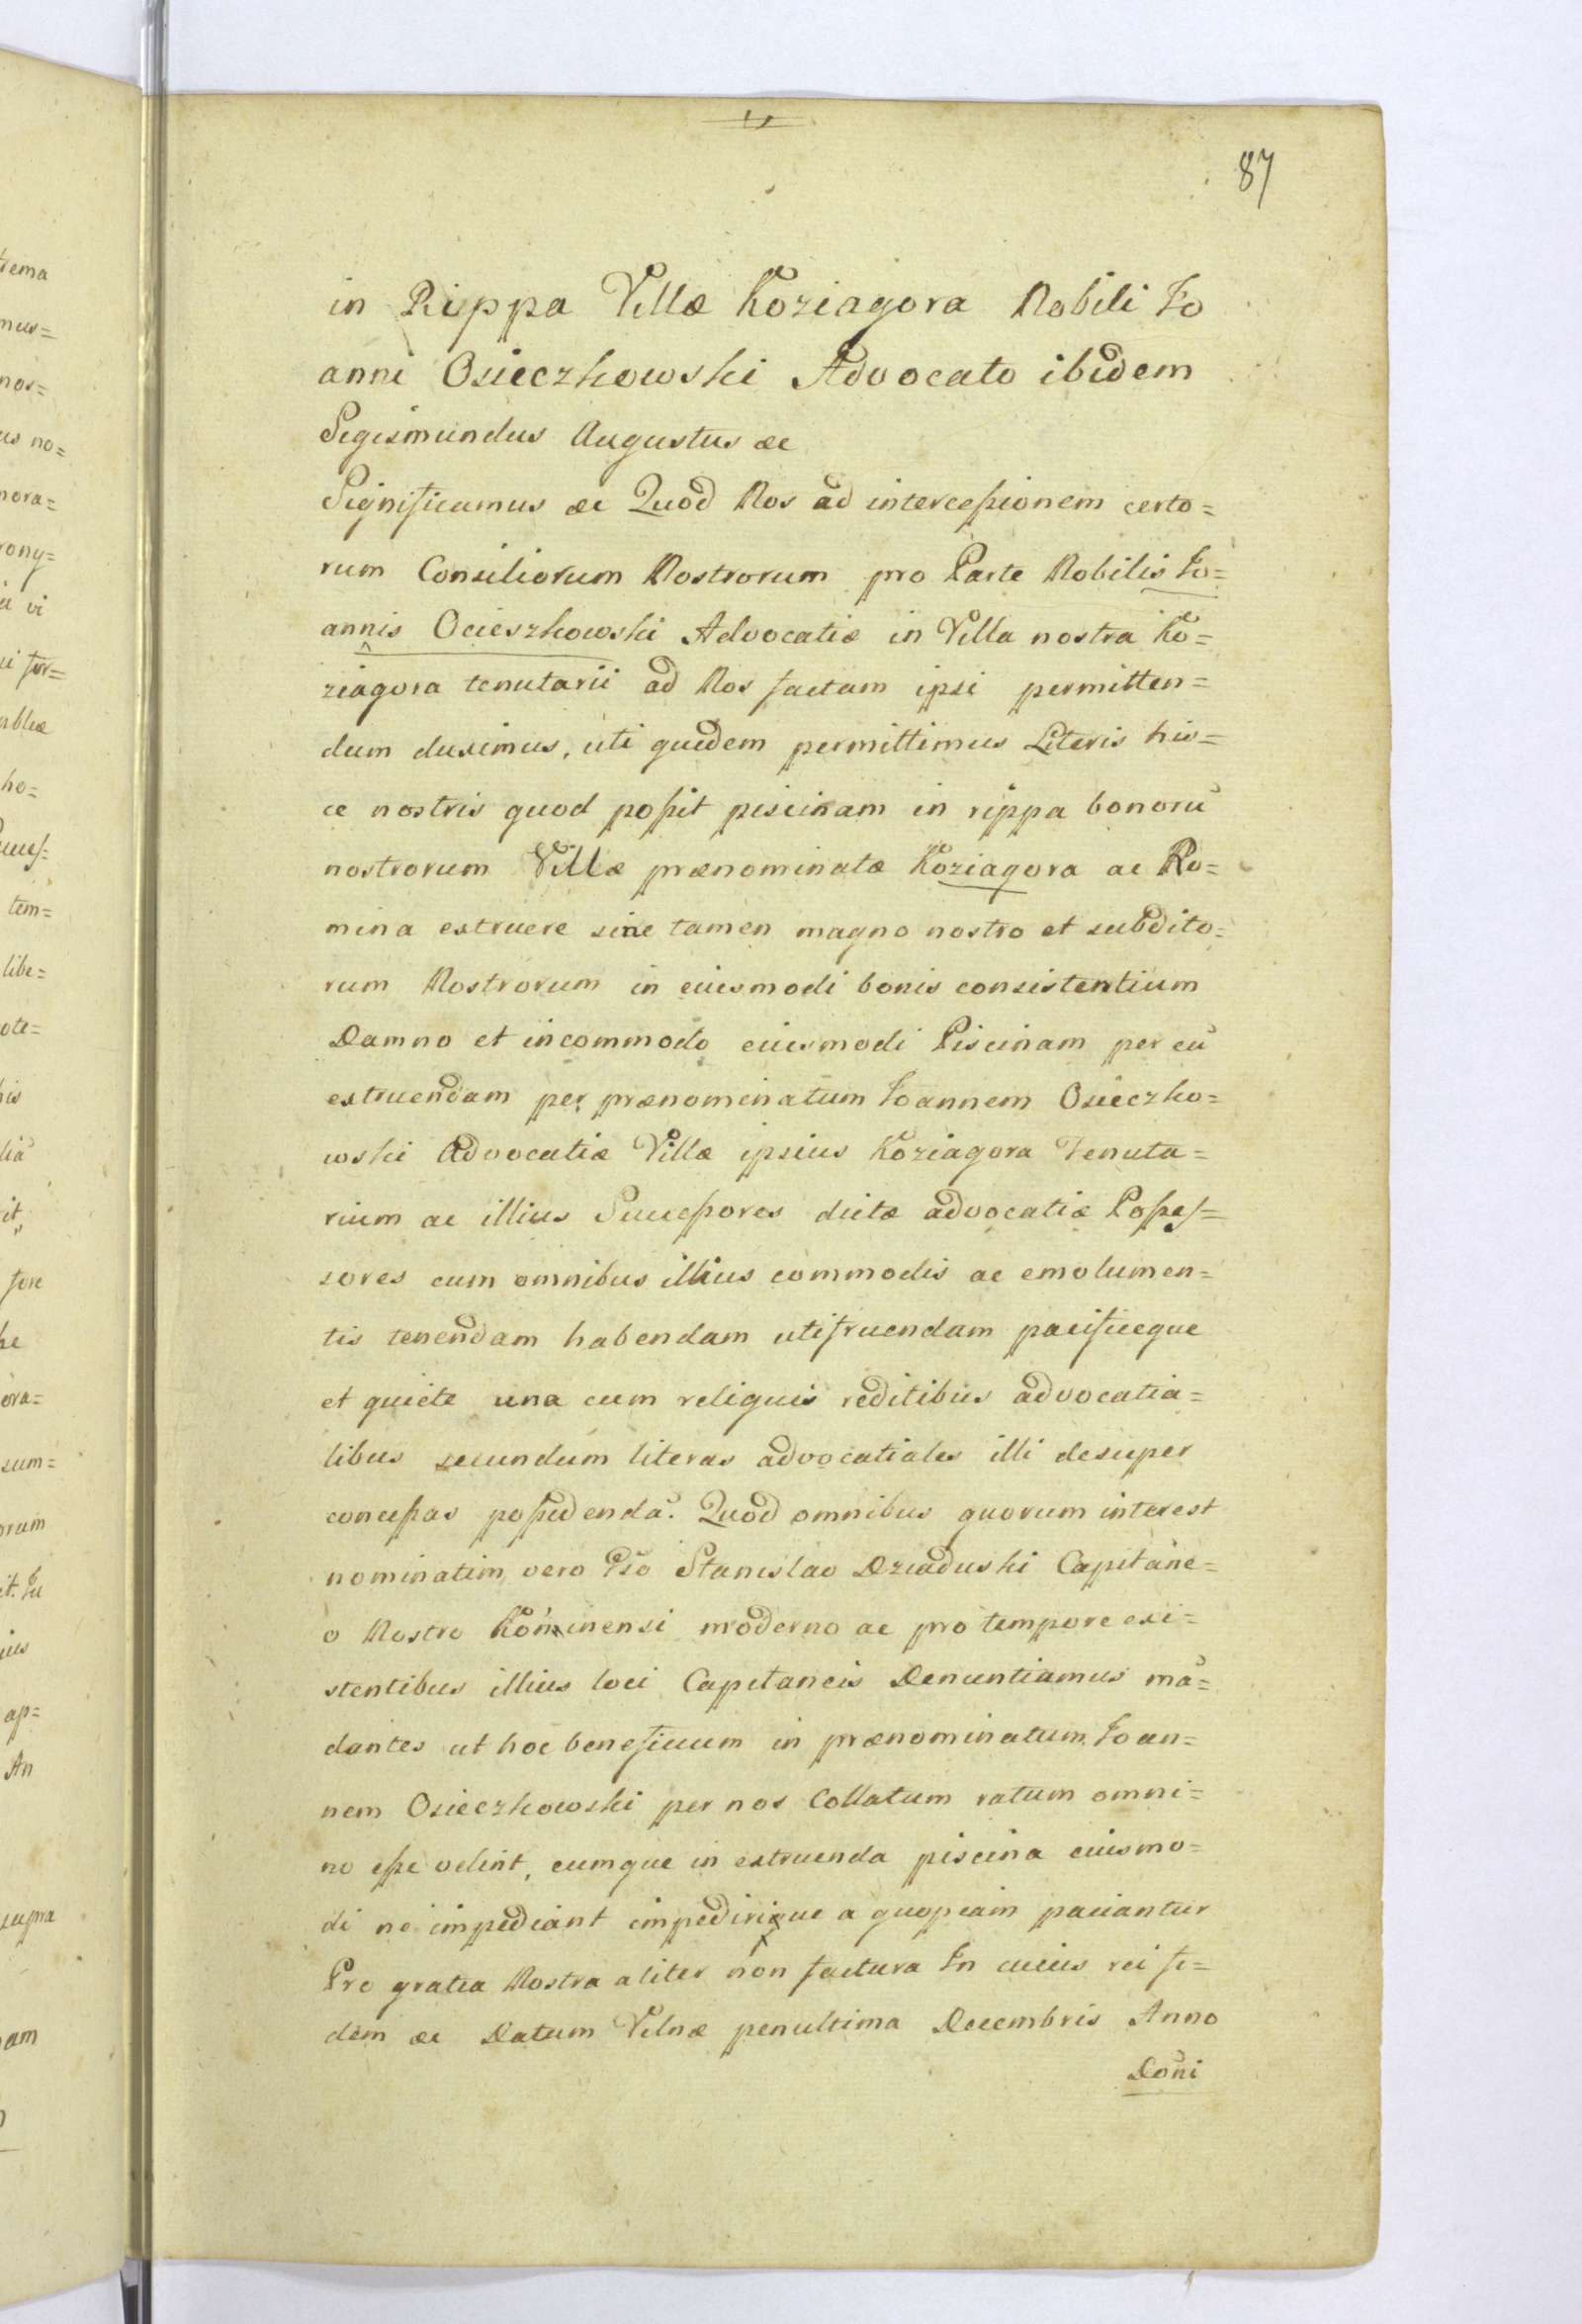 87
in Rippa Villæ Koziagora Nobili Jo
anni Osieczkowski Advocato ibidem
Sigismundus Augustus ac
Significamus ac Quod Nos ad intercessionem certo=
rum Consiliorum Nostrorum pro Parte Nobilis Jo=
annis Ocieszkowski Advocatiæ in Villa nostra Ko=
ziagora tenutarii ad Nos factam ipsi permitten=
dum duximus, uti quidem permittimus Literis his=
ce nostris quod possit piscinam in rippa bonorū
nostrorum Villæ prænominatæ Koziagora ac Ro=
mina extruere sine tamen magno nostro et subdito=
rum Nostrorum in eiusmodi bonis consistentium
Damno et incommodo eiusmodi Piscinam per eū
extruendam per prænominatum Joannem Osieczko=
wski Advocatiæ Villæ ipsius Koziagora Tenuta=
rium ac illius Successores dictæ advocatiæ Posses=
sores cum omnibus illius commodis ac emolumen=
tis tenendam habendam utifruendam pacificeque
et quiete una cum reliquis reditibus advocatia=
libus secundum literas advocatiales illi desuper
concessas possidendā. Quod omnibus quorum interest
nominatim vero Gso Stanislao Dziaduski Capitane=
o Nostro Koninensi moderno ac pro tempore exi=
stentibus illius loci Capitaneis Denuntiamus mā=
dantes ut hoc beneficium in prænominatum Joan=
nem Osieczkowski per nos Collatum ratum omni=
no esse velint, eumque in extruenda piscina eiusmo=
di ne impediant impedirique a quopiam paciantur
Pro gratia Nostra aliter non factura In cuius rei fi=
dem ac Datum Vilnæ penultima Decembris Anno
Doni